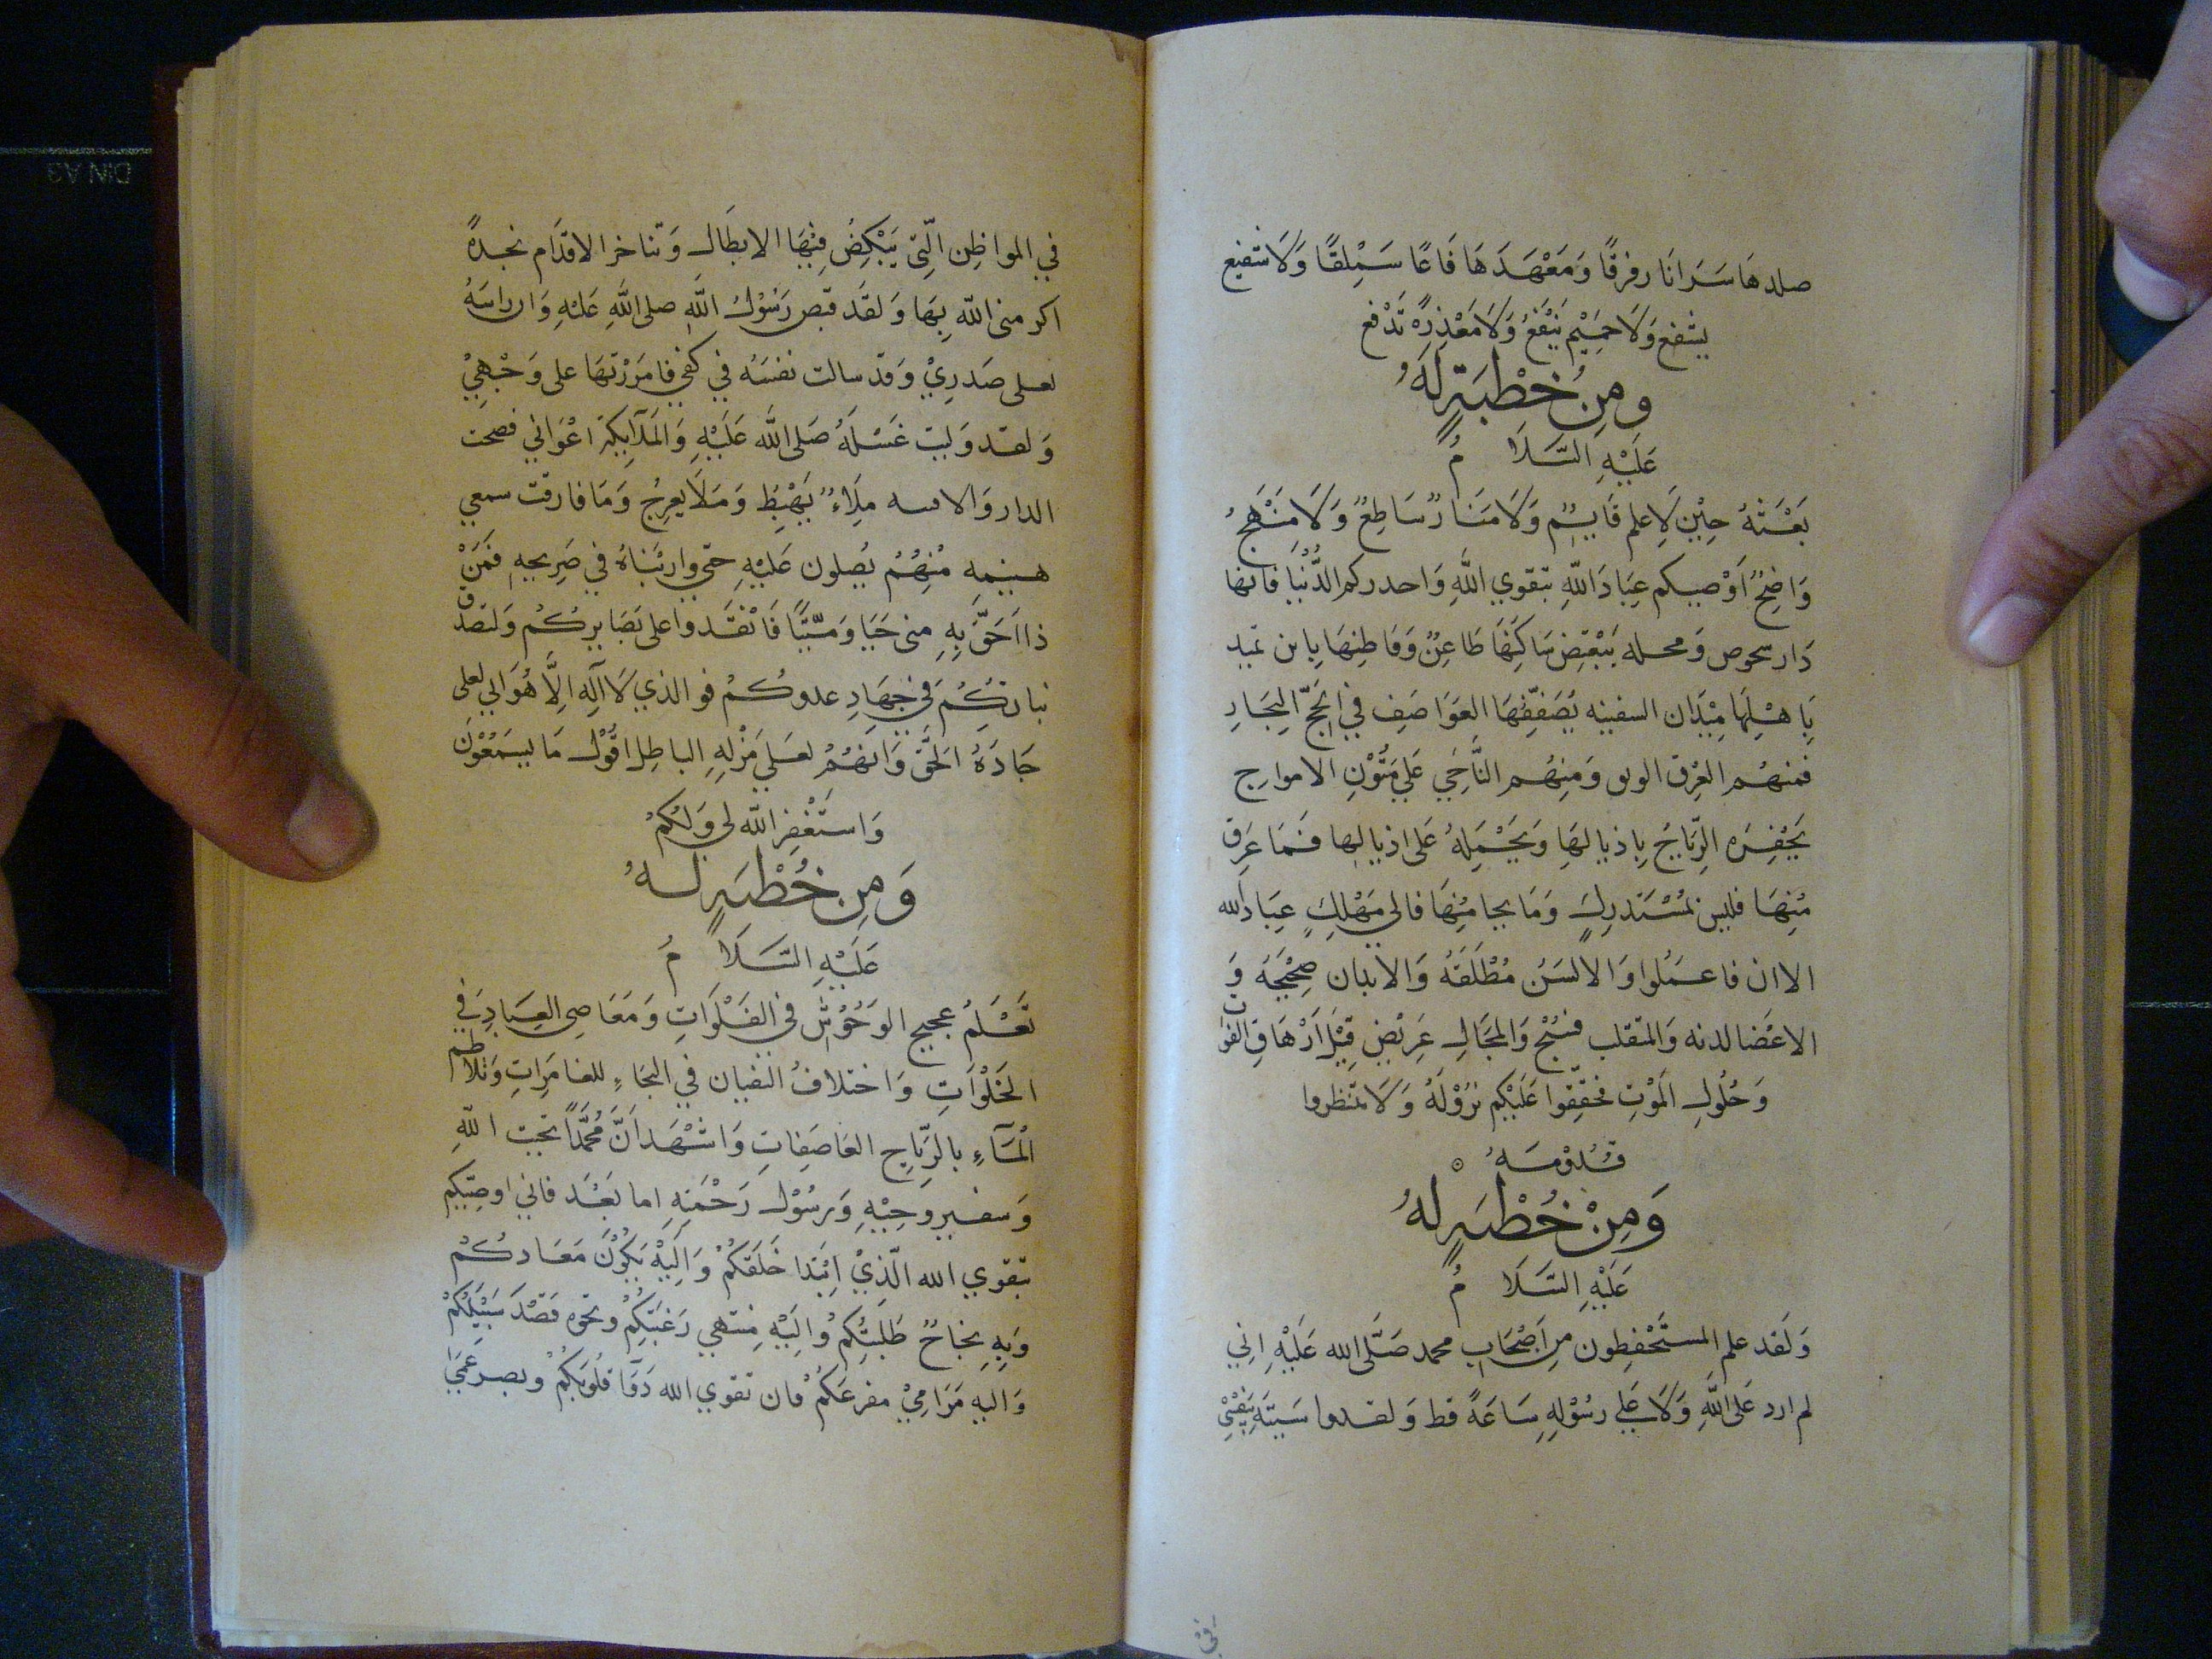 صلدها سَرَابًا رقرقًا وَمَعْهَدَهَا قَاعًا سَمْلَقًا وَلَا شفيع
يشفع وَلَا حَمِيْم يَنْفَعُ وَلَا مَعْذِرَة تَدْفع
ومِن خُطْبَةٍ لَهُ
عَلَيْهِ السَّلَامُ
بَعَثَهُ حِيْن لَا علم قَايِمٌ وَلَا مَنَارٌ سَاطِعٌ وَلَا مَنْهَجٌ
وَاضِحٌ اَوْصيكم عِبَادَ اللَّهِ بتقوي اللَّهِ وَاحدركم الدُّنْيَا فانها
دَار سحوص وَمحله تنغيص سَاكِنُهَا ظَاعِنٌ وَقَاطِنهَا بِاين تميد
بِاهْلِهَا مَيْدَان السفينه تُصَفِّقُهَا العَوَاصِف فِي لُجَجِ البِحَارِ
فمنهُم الغَرِق الوبق وَمِنهُم النَّاجِي عَلي مُتُوْنِ الامواج
تَحْفِزه الرِّيَاحُ بِاذيالهَا وَتَحْمِلهُ عَلى اذيالها فَمَا غَرِق
مِنْهَا فليس بمُسْتَدرِكٍ وَمَا نجا مِنْهَا فالى مَهْلِكٍ عِبَادَ الله
الاان فاعمَلُوا وَالالسَن مُطْلَقَهُ وَالابدان صَحِيْحَهُ وَ
الاعْضَا لدنه وَالمنقلب فسيْح وَالمجَالِ عَرِيْض قِبَلَ اَرْهَاقِ الفوت
وَحُلُولِ المَوْتِ فحَقِّقوا عَلَيْكم نزُوْلَهُ وَلَا تنتظروا
قُدُوْمَهُ
وَمِنْ خُطْبَةٍ لهُ
عَلَيْهِ السَّلَامُ
وَلَقد علم المستَحْفِظون مِن اَصْحَابِ محمد صَلَّى الله عَلَيْهِ انِي
لم ارد عَلى اللَّهِ وَلَا عَلي رسُوْلِهِ سَاعَةً قط وَلقد واسَيته بِنَفْسِي
فِي
في المواطِن الَّتِي يَنْكِصُ فِيْهَا الابطَال وَتتاخر الاقدَام نجدةً
اكرمنى الله بِهَا وَلقَد قبض رَسُوْلُ اللَّهِ صلى اللَّهِ عَلَيْهِ وَان راسَهُ
لعلى صَدرِيْ وَقد سالت نفسَهُ فِي كفي فامَرَرْتهَا على وَجْهِيْ
وَلقد وَليت غَسْلَهُ صَلى اللَّه عَلَيْهِ وَالمَلَايِكَة اعْوَاني فضجت
الدار وَالافنيه مَلَاءٌ يَهْبِط وَمَلَا يعرِجُ وَمَا فارقت سمعي
هينمه مُنهُمْ يُصلون عَلَيْهِ حتي وارَيْنَاهُ فِي ضَرِيحِهِ فَمَنْ
ذا اَحَقَّ بِهِ مِنى حَيَا وَمَيِّتًا فَانْفُذوا على بَصَايركُمْ وَلتصدق
نياتكُم فِي جِهَادِ عدوكُمْ فوالذي لَا الَه اِلَّا هُوَ اني لعلى
جَادَهُ الحَقَّ وَانهُمْ لعَلي مَزْلهِ الباطِل اقُوْل مَا تسمَعُوْن
وَاستَغفِر اللَّه لي وَلكُمْ
وَمِن خُطْبَةٍ لهُ
عَلَيْهِ السَّلَامُ
تَعْلمُ عجيج الوُحُوْش فِى الفَلْوَاتِ وَمَعَاصِى العِبَادِ فِي
الخَلْوَاتِ وَاختلافُ النينان فِي البحَاءِ للغامَرَاتِ وَتلاطم
المَآءِ بالرِّيَاحِ العَاصِفَاتِ وَاشْهَد اَنَّ مُحَمَّداً نجيب اللَّهِ
وَسفير وحِيْهِ وَرسُوْل رَحْمَتِهِ اما بَعْد فاني اوصِيكم
بتقوي الله الَّذِيْ ابْتَدا خَلقَكُمْ وَالِيْهِ يَكُوْنَ مَعَادكُمْ
وَبِهِ نجَاحٌ طَلَبَتِكُم وُالِيْهِ مُنتهي رَغبَتِكُمْ ونحوه قصْدَ سَبِيْلِكُمْ
وَاليهِ مَرَامِيْ مفزعَكُم فان تقوي الله دَوَآ قلُوبكُمْ وبصر عَمَي